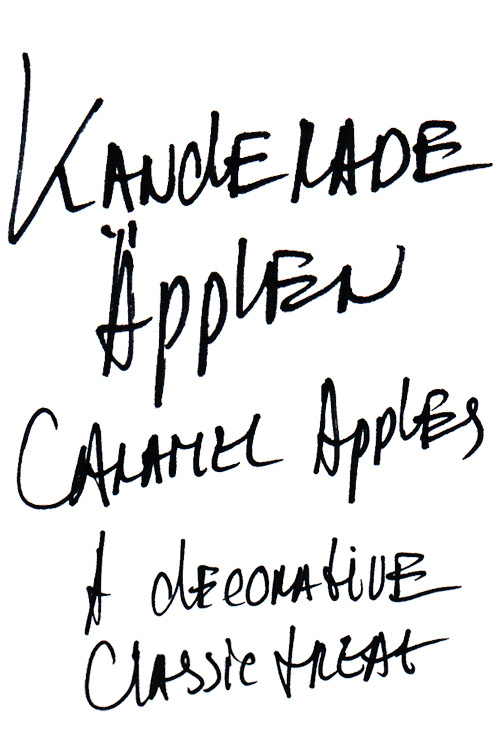 KANdERADE
ÄpplEN
CARAMEL Apples
A dECORAtiVE
Classic tREAt